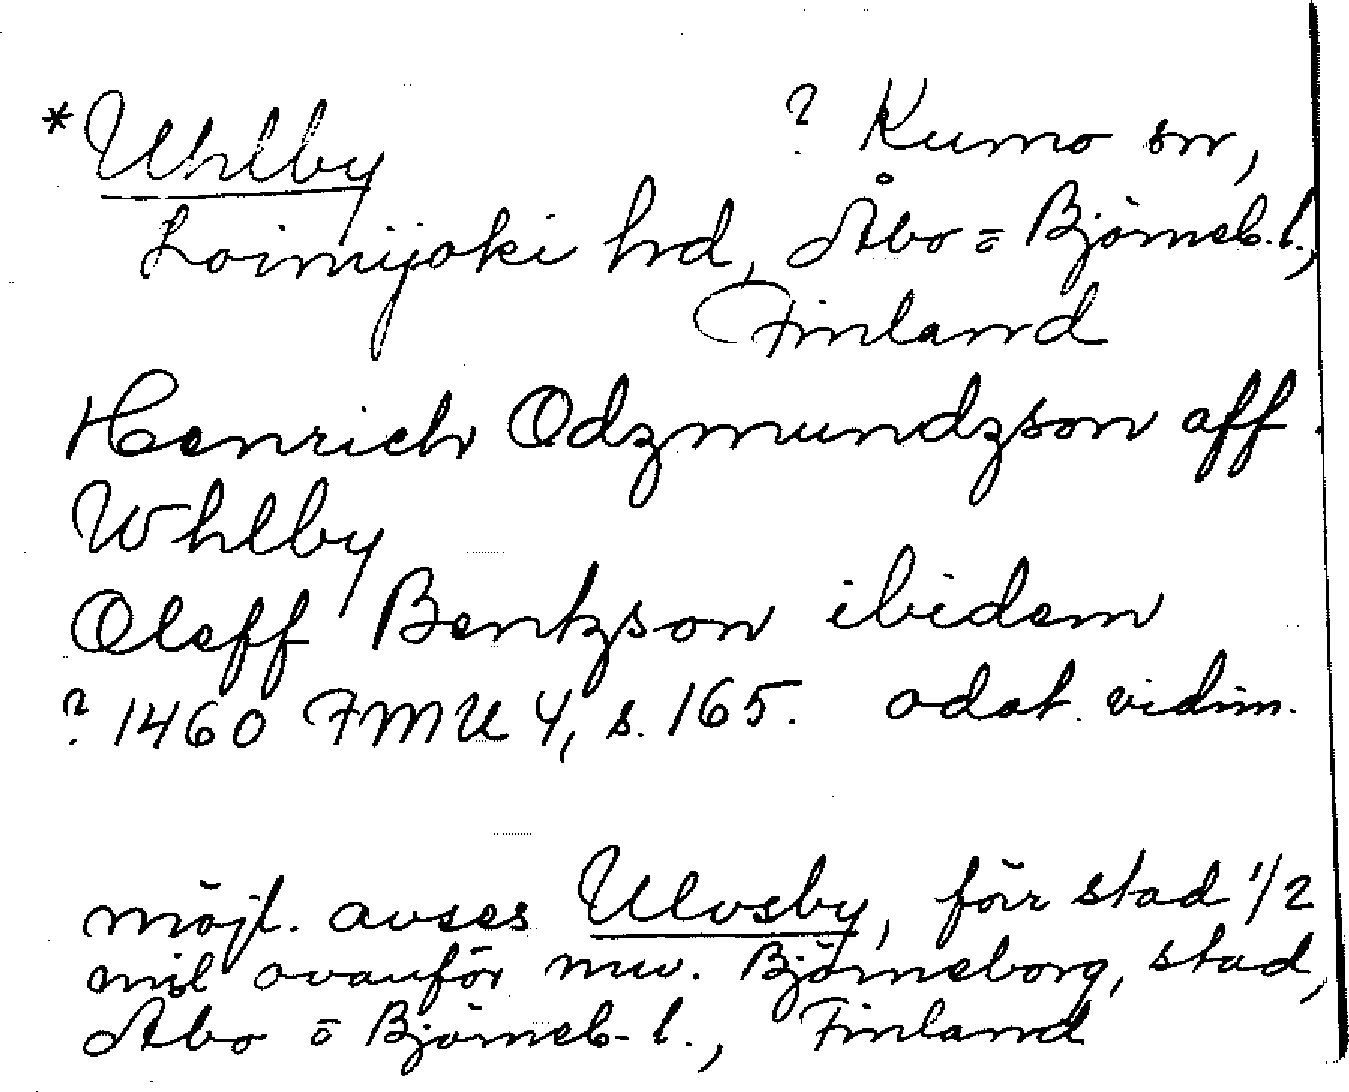 *Uhlby ? Kumo sn,
Loimijoki hd, Åbo = Björneb. l.,
Finland
Henrich Odzmundzson aff
Whlby
Oleff Bentzson ibidem
? 1460 FMU 4, s. 165. odat. vidim.
möjl. avses Ulvsby, förr stad 1/2
mil ovanför nuv. Björneborg, stad,
Åbo o Björneb- l., Finland